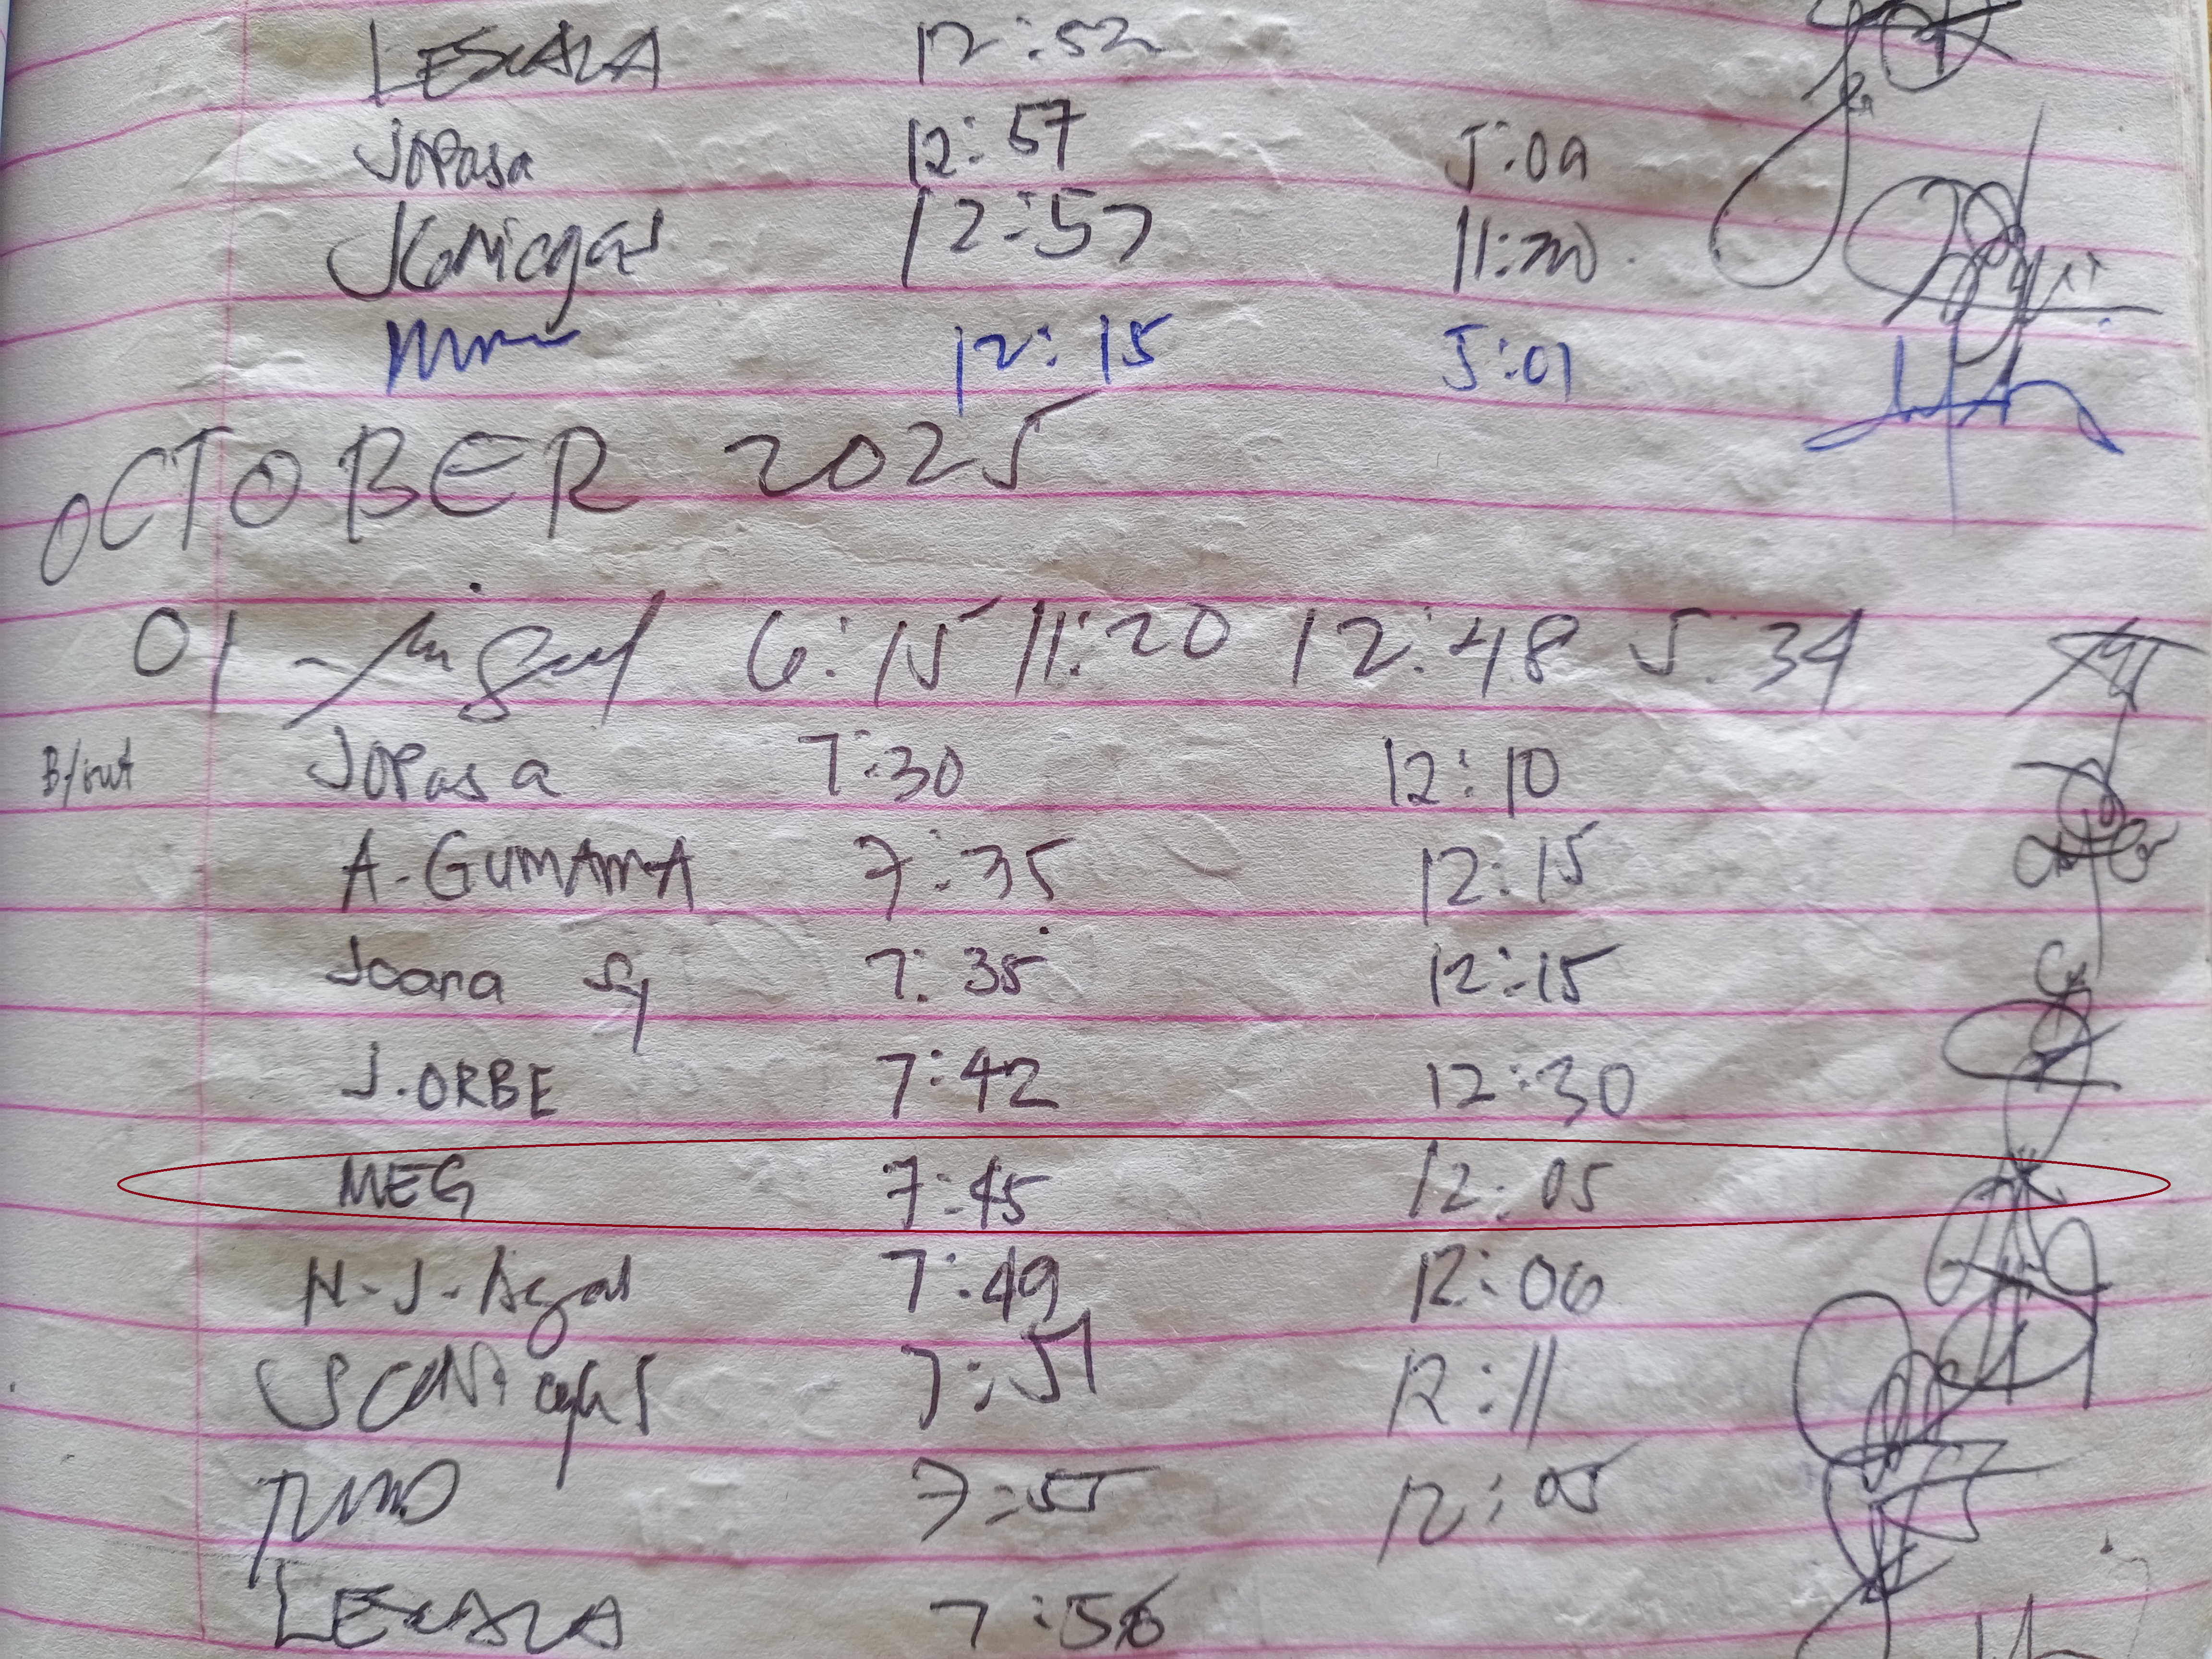 LESCALA 12:52
JOPasa 12:57 5:09
JCaniegas 12:57 11:20
12:15 5:01
OCTOBER 2025
01 Miguel 6:15 11:20 12:48 5:34
B/out JOPasa 7:30 12:10
A-GUMAMA 7:35 12:15
Joana Sy 7:35 12:15
J.ORBE 7:42 12:30
MEG 7:45 12:05
N-J-Agas 7:49 12:06
7:51 12:11
7:55 12:05
LESCALA 7:56